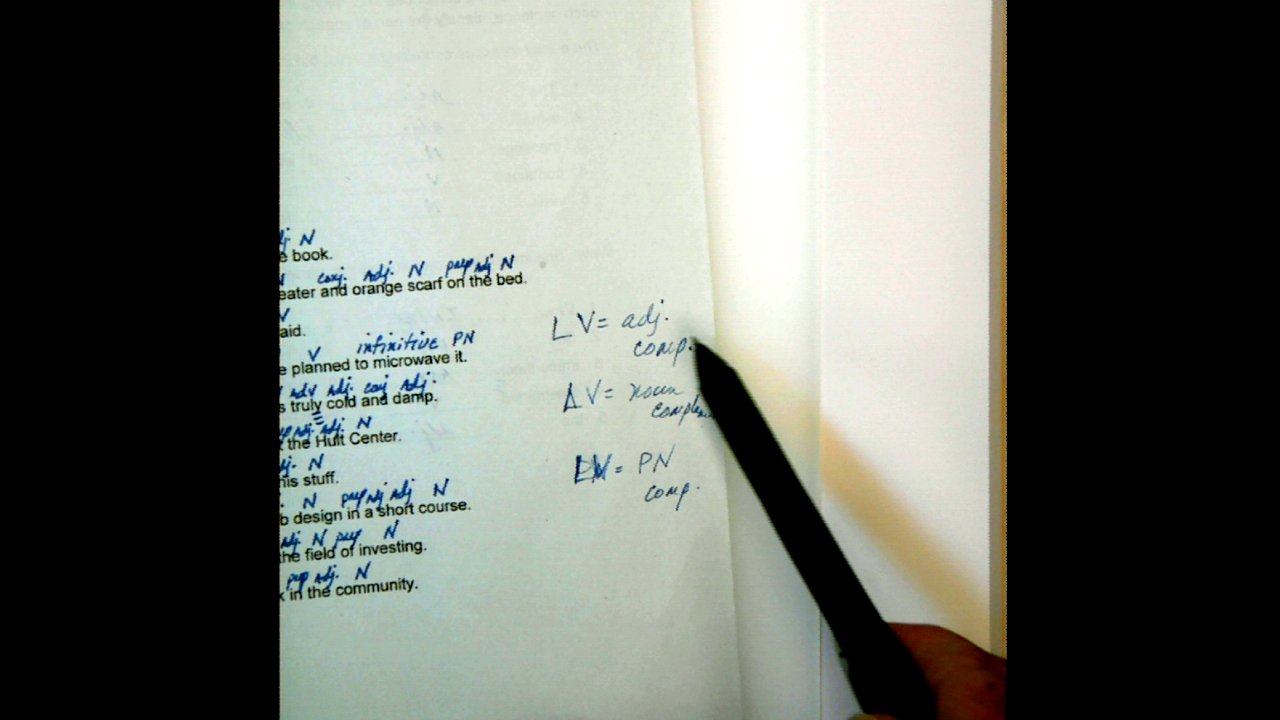 adj N
e book.
N conj. adj. N prep adj N
eater and orange scarf on the bed.
V
aid.
V infinitive PN
e planned to microwave it.
adv adj. conj adj.
s truly cold and damp.
adj. adj. N
t the Hult Center.
adj. N
his stuff.
N prep adj adj N
b design in a short course.
adj N prep N
the field of investing.
prep adj. N
k in the community.
LV = adj.
comp.
LV = noun
LV = PN
comp.